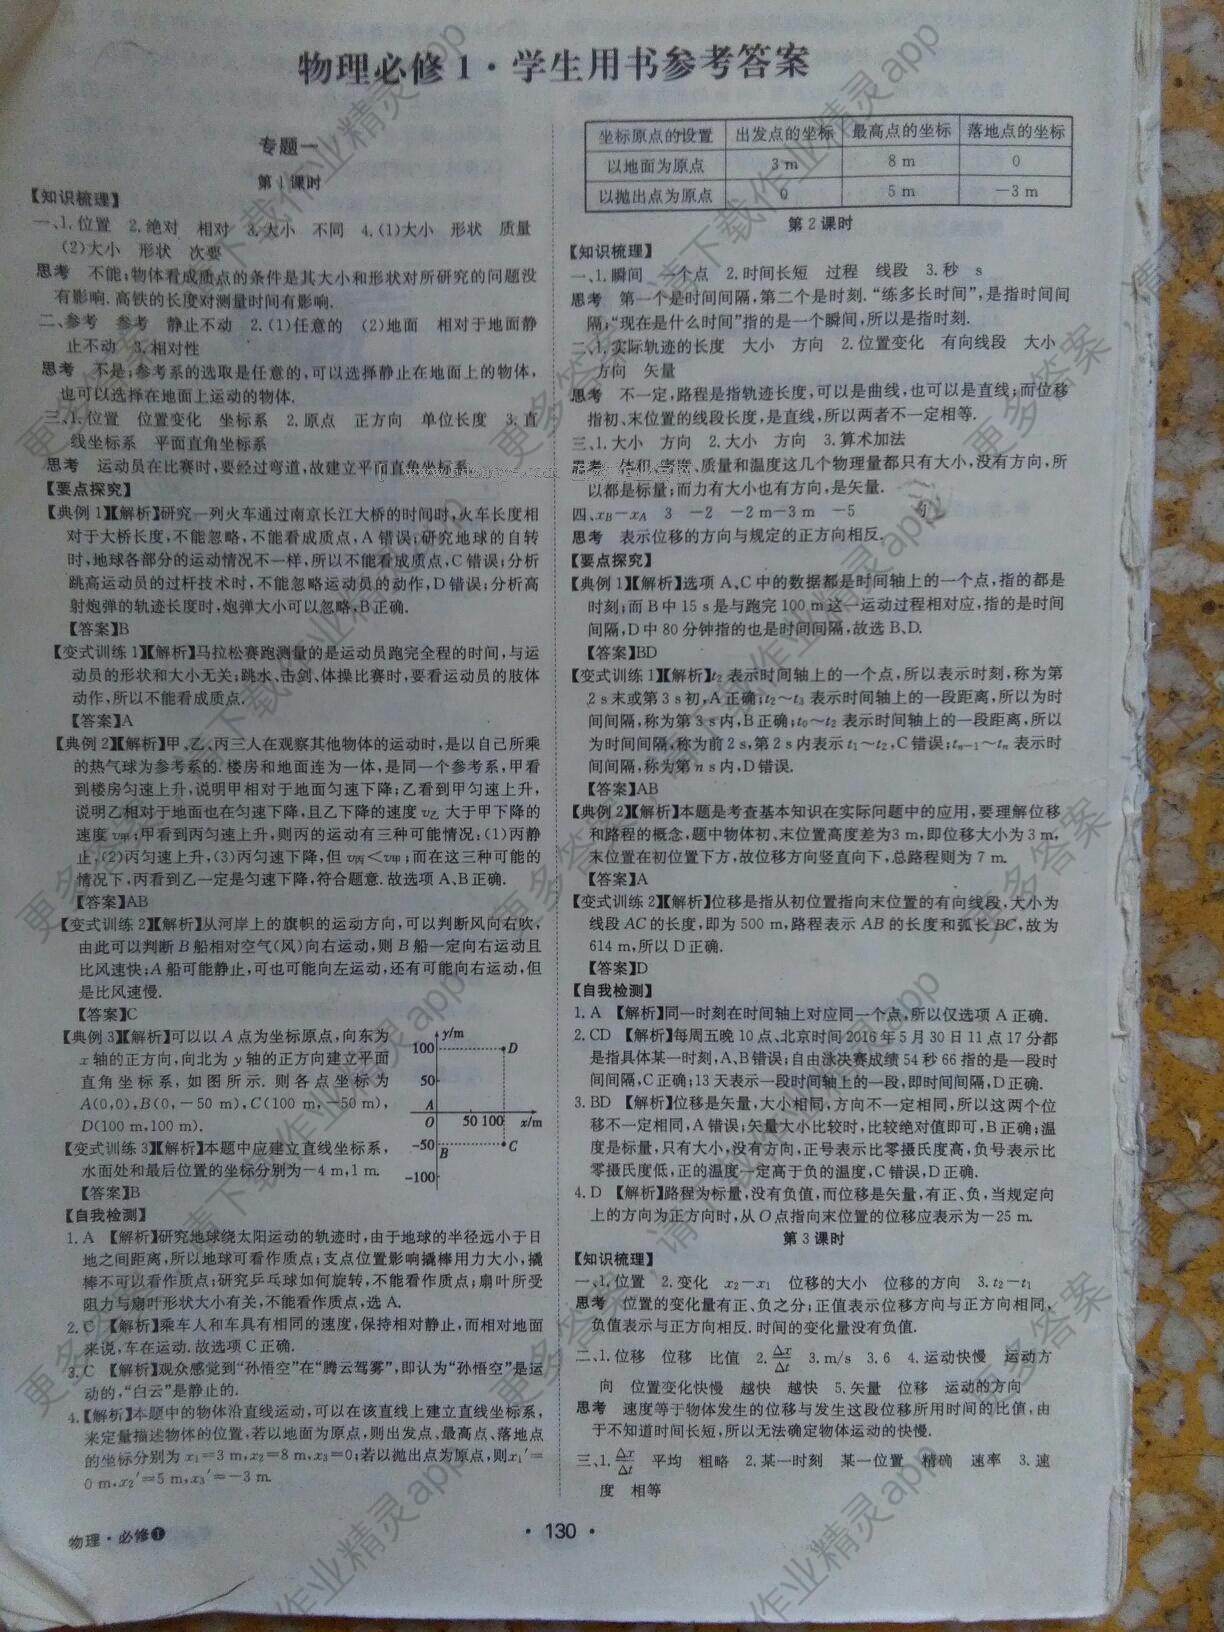 物理必修1·学生用书参考答案
专题一
第1课时
【知识梳理】
一、1.位置 2.绝对 相对 3.大小 不同 4.(1)大小 形状 质量
(2)大小 形状 次要
思考 不能;物体看成质点的条件是其大小和形状对所研究的问题没
有影响.高铁的长度对测量时间有影响.
二、参考 参考 静止不动 2.(1)任意的 (2)地面 相对于地面静
止不动 3.相对性
思考 不是;参考系的选取是任意的,可以选择静止在地面上的物体,
也可以选择在地面上运动的物体.
三、1.位置 位置变化 坐标系 2.原点 正方向 单位长度 3.直
线坐标系 平面直角坐标系
思考 运动员在比赛时,要经过弯道,故建立平面直角坐标系.
【要点探究】
【典例1】【解析】研究一列火车通过南京长江大桥的时间时,火车长度相
对于大桥长度,不能忽略,不能看成质点,A错误;研究地球的自转
时,地球各部分的运动情况不一样,所以不能看成质点,C错误;分析
跳高运动员的过杆技术时,不能忽略运动员的动作,D错误;分析高
射炮弹的轨迹长度时,炮弹大小可以忽略,B正确.
【答案】B
【变式训练1】【解析】马拉松赛跑测量的是运动员跑完全程的时间,与运
动员的形状和大小无关;跳水、击剑、体操比赛时,要看运动员的肢体
动作,所以不能看成质点.
【答案】A
【典例2】【解析】甲、乙、丙三人在观察其他物体的运动时,是以自己所乘
的热气球为参考系的.楼房和地面连为一体,是同一个参考系,甲看
到楼房匀速上升,说明甲相对于地面匀速下降;乙看到甲匀速上升,
说明乙相对于地面也在匀速下降,且乙下降的速度v乙大于甲下降的
速度v甲;甲看到丙匀速上升,则丙的运动有三种可能情况:(1)丙静
止,(2)丙匀速上升,(3)丙匀速下降,但v丙<v甲;而在这三种可能的
情况下,丙看到乙一定是匀速下降,符合题意.故选项A、B正确.
【答案】AB
【变式训练2】【解析】从河岸上的旗帜的运动方向,可以判断风向右吹,
由此可以判断B船相对空气(风)向右运动,则B船一定向右运动且
比风速快;A船可能静止,可也可能向左运动,还有可能向右运动,但
是比风速慢.
【答案】C
【典例3】【解析】可以以A点为坐标原点,向东为
x轴的正方向,向北为y轴的正方向建立平面
直角坐标系,如图所示.则各点坐标为
A(0,0),B(0,-50 m),C(100 m,-50 m),
D(100 m,100 m).
y/m
100
D
50
A
O
50 100 x/m
-50
B
C
-100
【变式训练3】【解析】本题中应建立直线坐标系,
水面处和最后位置的坐标分别为-4 m,1 m.
【答案】B
【自我检测】
1. A 【解析】研究地球绕太阳运动的轨迹时,由于地球的半径远小于日
地之间距离,所以地球可看作质点;支点位置影响撬棒用力大小,撬
棒不可以看作质点;研究乒乓球如何旋转,不能看作质点;扇叶所受
阻力与扇叶形状大小有关,不能看作质点,选A.
2. C 【解析】乘车人和车具有相同的速度,保持相对静止,而相对地面
来说,车在运动.故选项C正确.
3. C 【解析】观众感觉到“孙悟空”在“腾云驾雾”,即认为“孙悟空”是运
动的,“白云”是静止的.
4.【解析】本题中的物体沿直线运动,可以在该直线上建立直线坐标系,
来定量描述物体的位置,若以地面为原点,则出发点、最高点、落地点
的坐标分别为x₁=3 m,x₂=8 m,x₃=0;若以抛出点为原点,则x₁′=
0 m,x₂′=5 m,x₃′=-3 m.
坐标原点的设置 出发点的坐标 最高点的坐标 落地点的坐标
以地面为原点 3 m 8 m 0
以抛出点为原点 0 5 m -3 m
第2课时
【知识梳理】
一、1.瞬间 一个点 2.时间长短 过程 线段 3.秒 s
思考 第一个是时间间隔,第二个是时刻.“练多长时间”,是指时间间
隔;“现在是什么时间”指的是一个瞬间,所以是指时刻.
二、1.实际轨迹的长度 大小 方向 2.位置变化 有向线段 大小
方向 矢量
思考 不一定,路程是指轨迹长度,可以是曲线,也可以是直线;而位移
指初、末位置的线段长度,是直线,所以两者不一定相等.
三、1.大小 方向 2.大小 方向 3.算术加法
思考 体积、密度、质量和温度这几个物理量都只有大小,没有方向,所
以都是标量;而力有大小也有方向,是矢量.
四、xB-xA 3 -2 -2 m-3 m -5
思考 表示位移的方向与规定的正方向相反.
【要点探究】
【典例1】【解析】选项A、C中的数据都是时间轴上的一个点,指的都是
时刻;而B中15 s是与跑完100 m这一运动过程相对应,指的是时间
间隔,D中80分钟指的也是时间间隔,故选B、D.
【答案】BD
【变式训练1】【解析】t₂表示时间轴上的一个点,所以表示时刻,称为第
2 s末或第3 s初,A正确;t₂~t₃表示时间轴上的一段距离,所以为时
间间隔,称为第3 s内,B正确;t₀~t₂表示时间轴上的一段距离,所以
为时间间隔,称为前2 s,第2 s内表示t₁~t₂,C错误;tₙ₋₁~tₙ表示时
间间隔,称为第n s内,D错误.
【答案】AB
【典例2】【解析】本题是考查基本知识在实际问题中的应用,要理解位移
和路程的概念,题中物体初、末位置高度差为3 m,即位移大小为3 m,
末位置在初位置下方,故位移方向竖直向下,总路程则为7 m.
【答案】A
【变式训练2】【解析】位移是指从初位置指向末位置的有向线段,大小为
线段AC的长度,即为500 m,路程表示AB的长度和弧长BC,故为
614 m,所以D正确.
【答案】D
【自我检测】
1. A 【解析】同一时刻在时间轴上对应同一个点,所以仅选项A正确.
2. CD 【解析】每周五晚10点、北京时间2016年5月30日11点17分都
是指具体某一时刻,A、B错误;自由泳决赛成绩54秒66指的是一段时
间间隔,C正确;13天表示一段时间轴上的一段,即时间间隔,D正确.
3. BD 【解析】位移是矢量,大小相同,方向不一定相同,所以这两个位
移不一定相同,A错误;矢量大小比较时,比较绝对值即可,B正确;温
度是标量,只有大小,没有方向,正号表示比零摄氏度高,负号表示比
零摄氏度低,正的温度一定高于负的温度,C错误,D正确.
4. D 【解析】路程为标量,没有负值,而位移是矢量,有正、负,当规定向
上的方向为正方向时,从O点指向末位置的位移应表示为-25 m.
第3课时
【知识梳理】
一、1.位置 2.变化 x₂-x₁ 位移的大小 位移的方向 3.t₂-t₁
思考 位置的变化量有正、负之分;正值表示位移方向与正方向相同,
负值表示与正方向相反.时间的变化量没有负值.
二、1.位移 位移 比值 2.Δx/Δt 3.m/s 3.6 4.运动快慢 运动方
向 位置变化快慢 越快 越快 5.矢量 位移 运动的方向
思考 速度等于物体发生的位移与发生这段位移所用时间的比值,由
于不知道时间长短,所以无法确定物体运动的快慢.
三、1.Δx/Δt 平均 粗略 2.某一时刻 某一位置 精确 速率 3.速
度 相等
物理·必修1
·130·